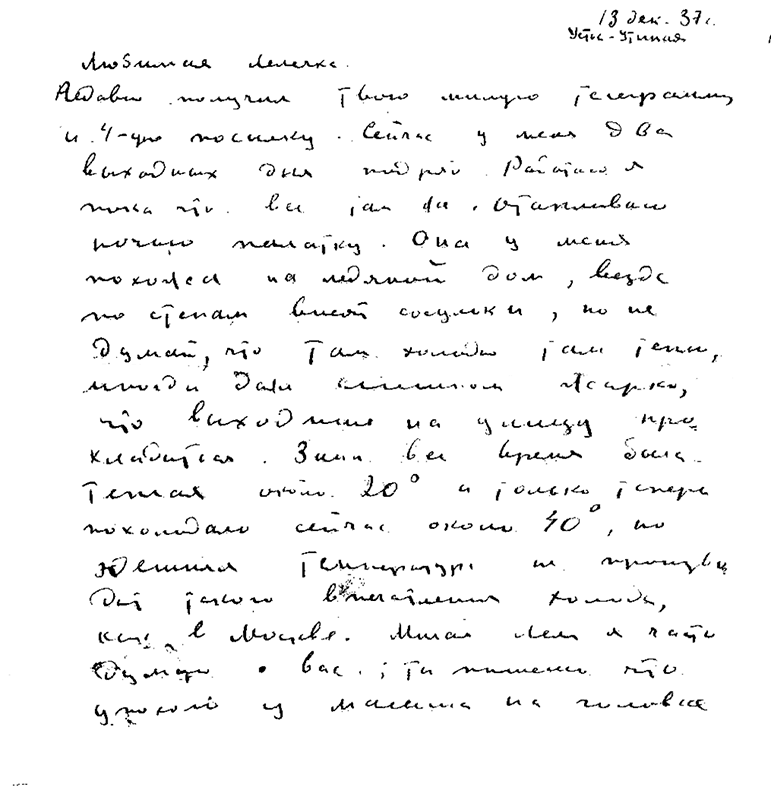 13 дек. 37 г.
Усть-Утиная
Любимая Лелечка.
Недавно получил твою милую телеграмму
и 4-ую посылку. Сейчас у меня два
выходных дня подряд. Работаю я
пока что все там же. Отапливаю
ночью палатку. Она у меня
похожа на ледяной дом, везде
по стенам висят сосульки, но не
думай, что там холодно там тепло,
иногда даже слишком жарко,
что выходишь на улицу про
хладиться. Зима все время была
теплая около 20° и только теперь
похолодало сейчас около 40°, но
здешняя температура не произво
дит такого впечатления холода,
как в Москве. Милая Леля я часто
думаю о вас. Ты пишешь что
у малыша на головке